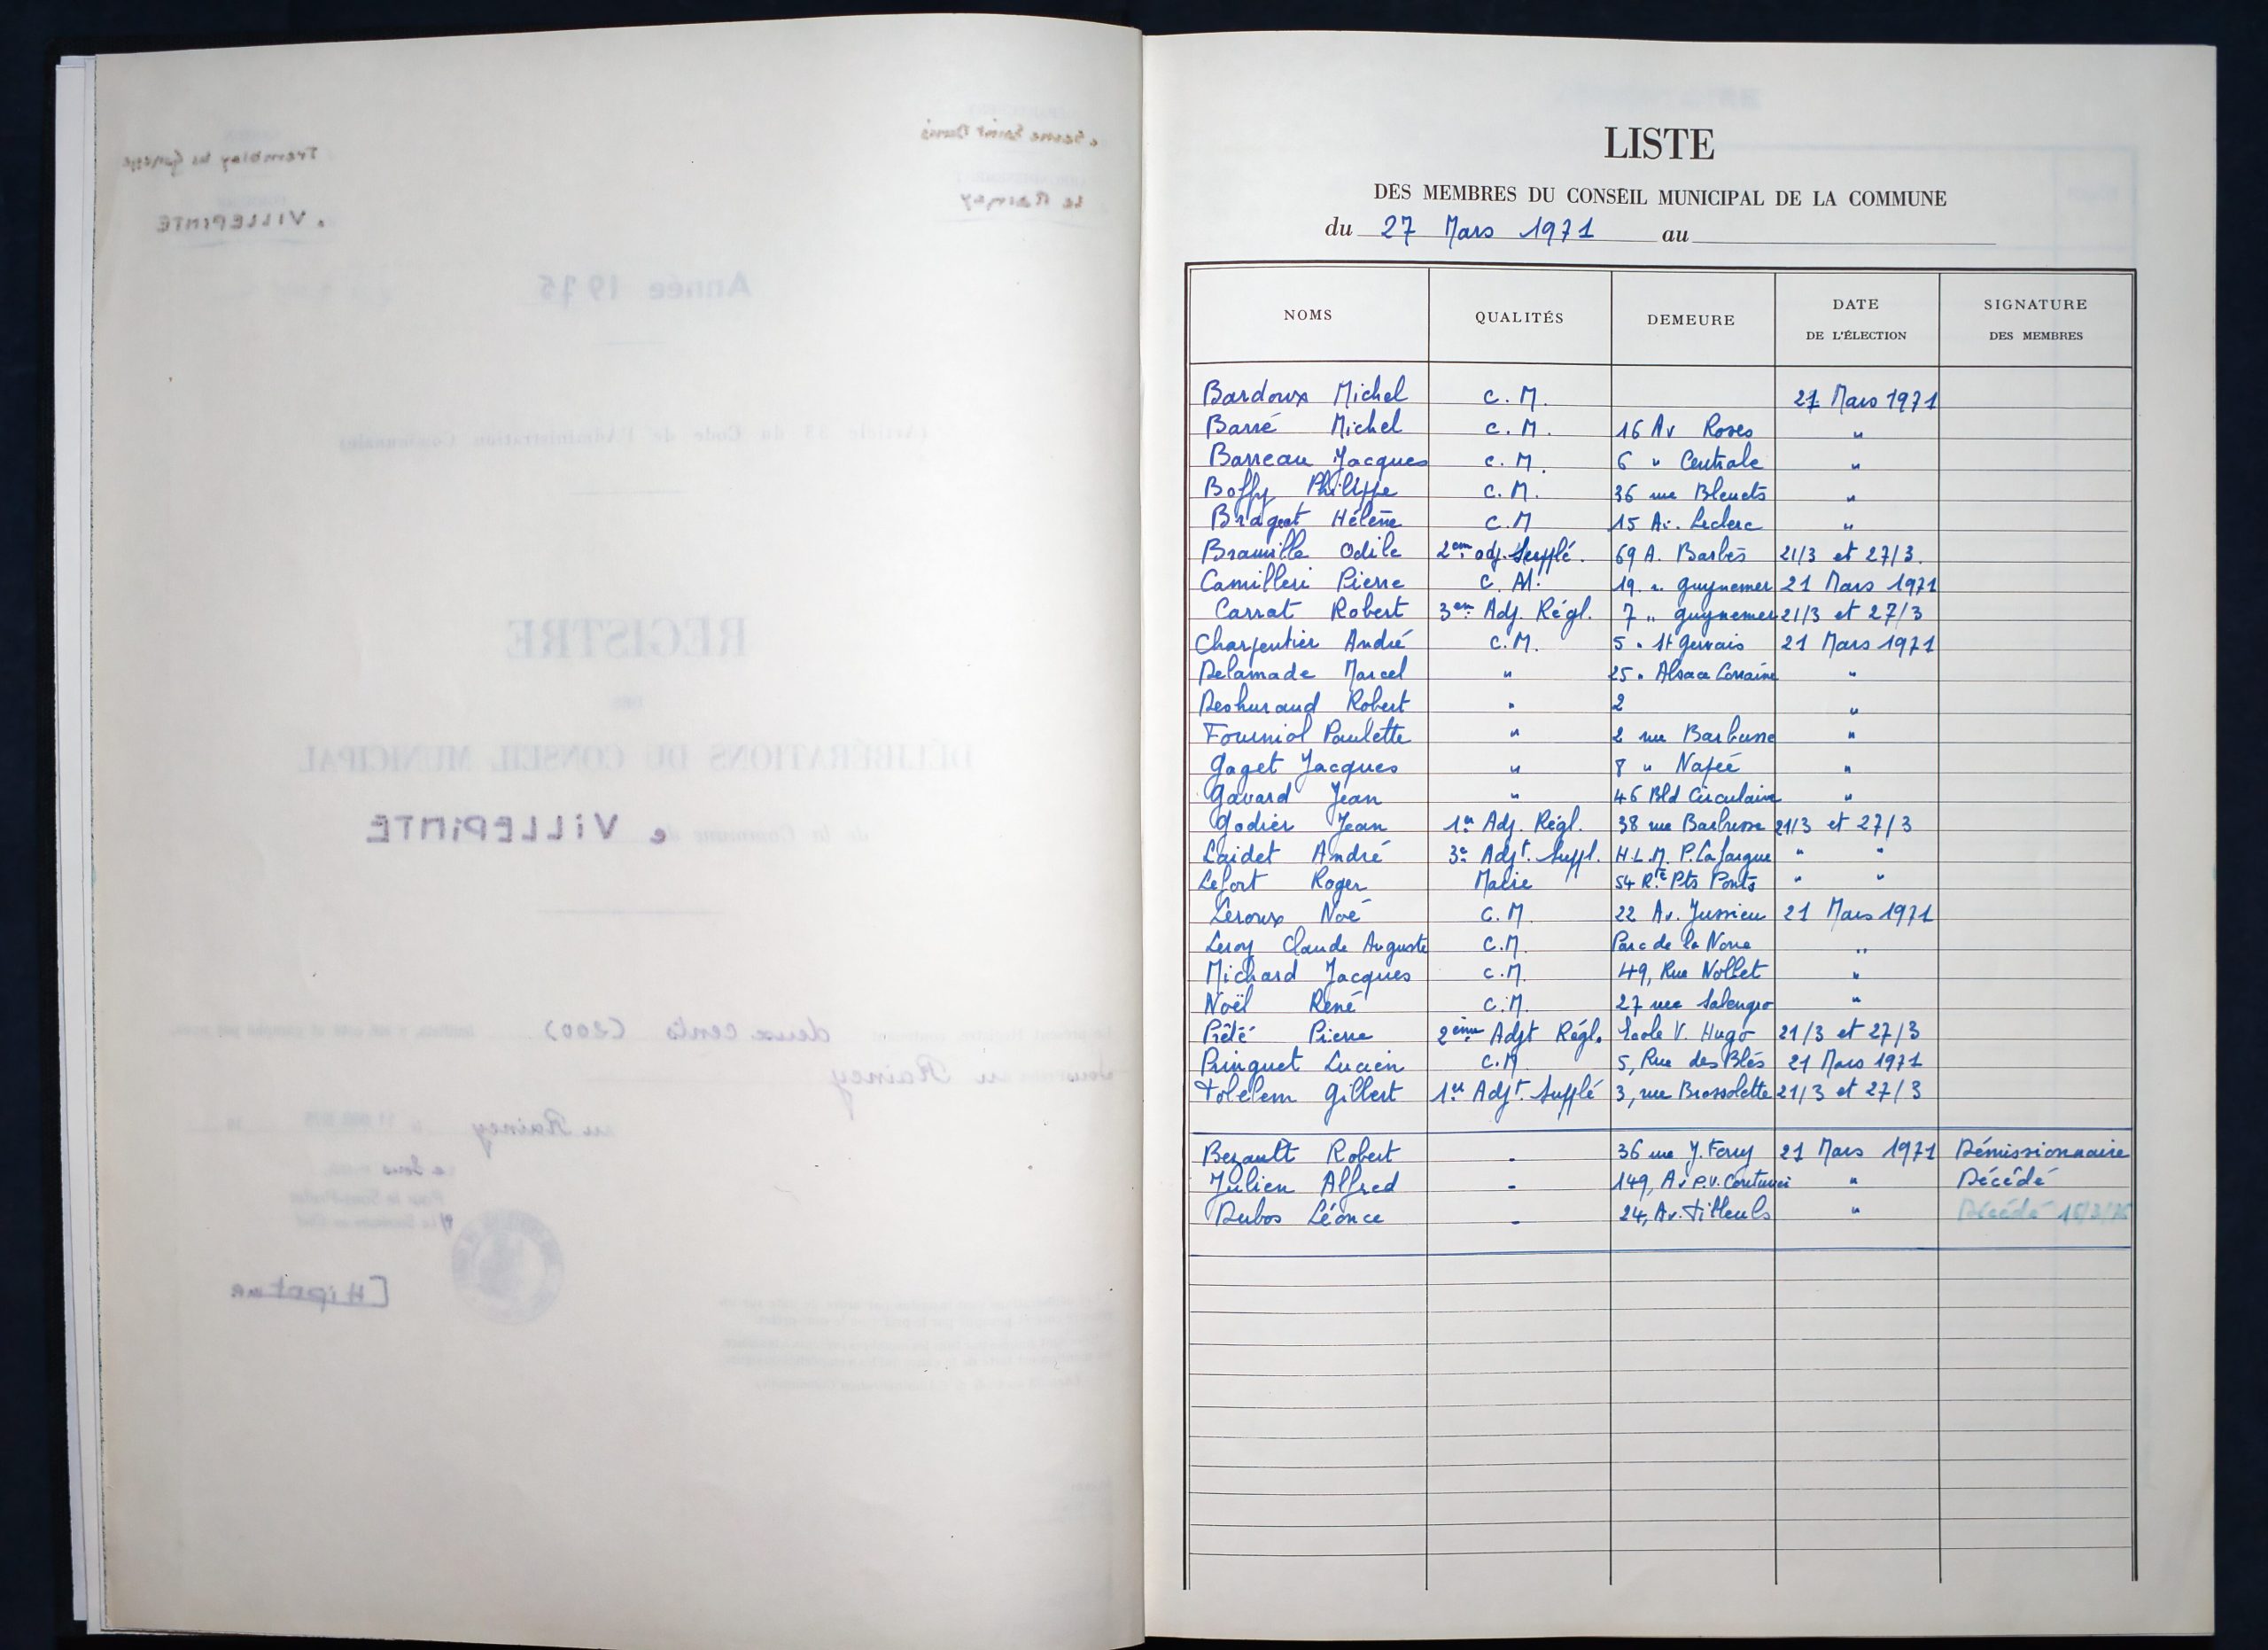 LISTE
DES MEMBRES DU CONSEIL MUNICIPAL DE LA COMMUNE
du 27 Mars 1971 au
NOMS QUALITÉS DEMEURE DATE DE L'ÉLECTION SIGNATURE DES MEMBRES
Bardoux Michel C.M. 21 Mars 1971
Barré Michel C.M. 16 Av Roses "
Barreau Jacques C.M. 6 " Centrale "
Boffy Philippe C.M. 36 rue Bleuets "
Brageot Hélène C.M 15 Av. Leclerc "
Bramille Odile 2em adj. Supplé. 69 A. Barbès 21/3 et 27/3.
Camilleri Pierre C.M. 19 " guynemer 21 Mars 1971
Carrat Robert 3em Adj. Régl. 7 " guynemer 21/3 et 27/3
Charpentier André C.M. 5 " St Gervais 21 Mars 1971
Delamade Marcel " 25 " Alsace Lorraine "
Deshuraud Robert " 2 "
Fourniol Paulette " 2 rue Barbusse "
Gaget Jacques " 8 " "
Gavard Jean " 46 Bld Circulaire "
Godier Jean 1er Adj. Régl. 38 rue Barbusse 21/3 et 27/3
Laidet André 3e Adjt. Suppl. H.L.M. P. Lafargue " "
Lefort Roger Maire 54 Rte Pts Ponts " "
Leroux Noé C.M. 22 Av. Jussieu 21 Mars 1971
Leroy Claude Auguste C.M. Parc de la Noue "
Michard Jacques C.M. 49, Rue Nollet "
Noël René C.M. 27 rue Salengro "
Prêté Pierre 2ème Adjt Régl. Ecole V. Hugo 21/3 et 27/3
Pringuet Lucien C.M 5, Rue des Blés 21 Mars 1971
Tolelem Gilbert 1er Adjt. Supplé 3, rue Brossolette 21/3 et 27/3
Bezault Robert - 36 rue J. Ferry 21 Mars 1971 Démissionnaire
Julien Alfred - 149, Av P.V. Couturier " Décédé
Dubos Léonce - 24, Av. Tilleuls " Décédé